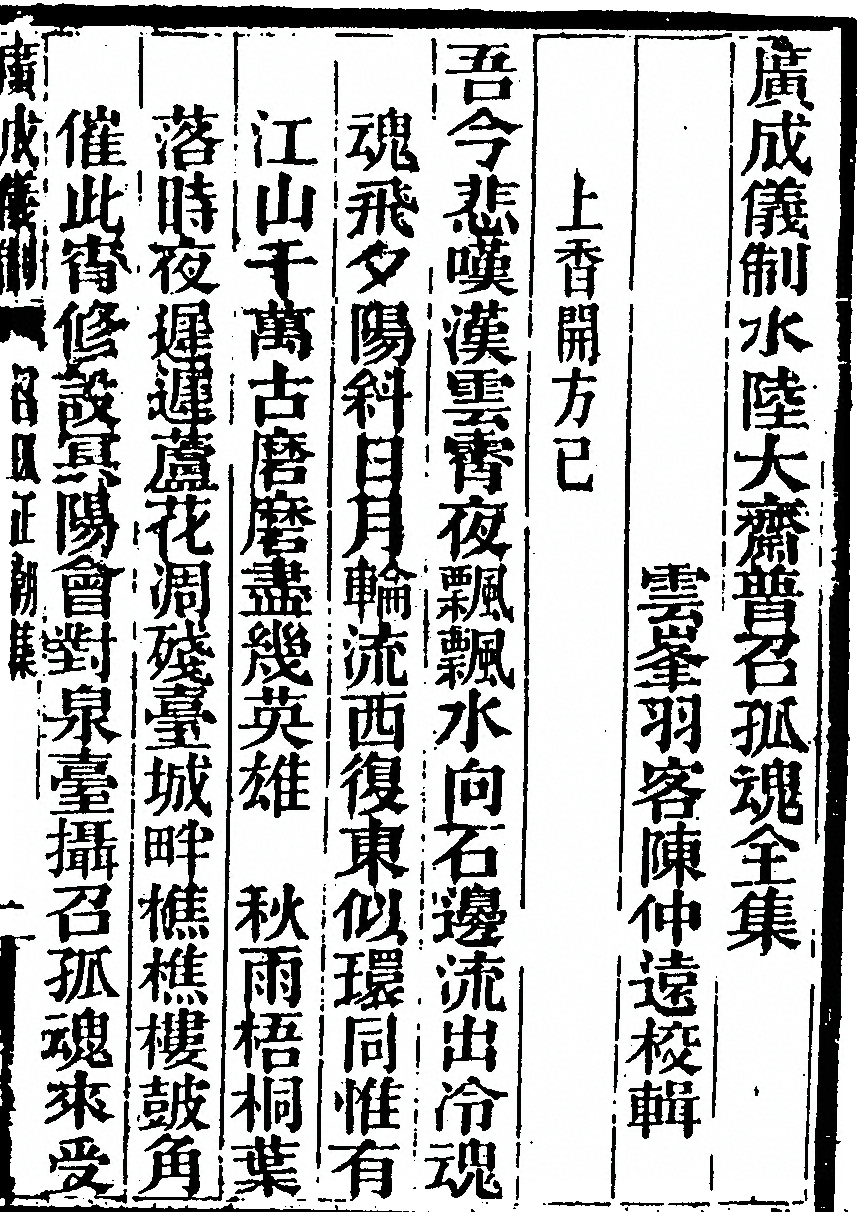 廣成儀制水陸大齋普召孤魂全集
雲峯羽客陳仲遠校輯
上香開方已
吾今悲嘆漢雲霄夜飄飄水向石邊流出冷魂
魂飛夕陽科日月輪流西復東似環同惟有
江山千萬古磨磨盡幾英雄　秋雨梧桐葉
落時夜遲遲蘆花凋殘臺城畔樵樵樓鼓角
催此宵修設冥陽會對泉臺攝召孤魂來受
廣成儀制
正朝集
一